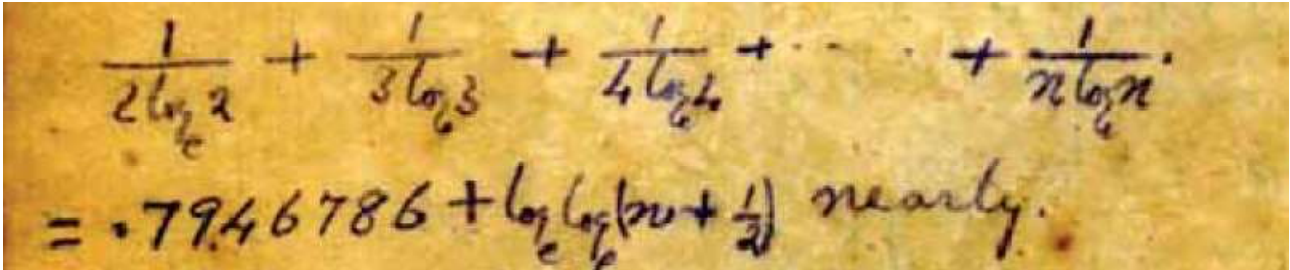 1/(2 log_e 2) + 1/(3 log_e 3) + 1/(4 log_e 4) + · · · + 1/(n log_e n).
= .7946786 + log_e log_e (n + 1/2) nearly.